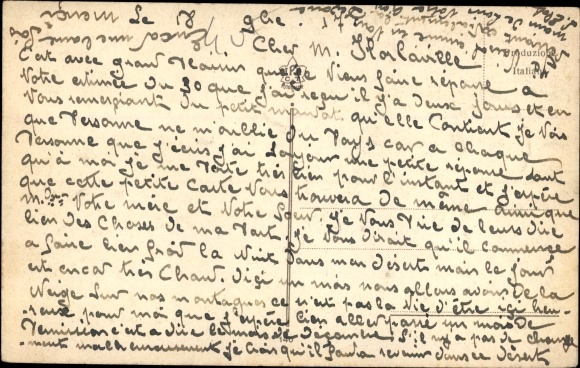 Le 8 9bre 17
Cher M. Florlaville
C'est avec grand plaisir que je viens faire réponse a
votre estimée du 30 que j'ai reçu il y a deux jours et en
vous remerciant du petit mandat qu'elle contient je vois
que personne ne m'oublie du pays car a chaque
personne que j'écris j'ai toujour une petite réponse tant
qu'à moi je me porte très bien pour l'instant et j'espère
que cette petite carte vous trouvera de même ainsi que
votre mère et votre Soeur. je vous prie de leurs dire
bien des choses de ma part je vous dirait qu'il commence
a faire bien froit la nuit dans mon déserts mais le jour
est encor très chaud. D'içi un mois nous allons avoir de la
neige sur nos montagnes ce n'est pas la vie d'être si heu-
reuse pour moi que j'espère bien aller passé un mois de
permission c'est a dire le mois de décembre s'il n'y a pas de change
ment malheureusement je crois qu'il faudra revenir dans ce déserts
Produzione
Italiana